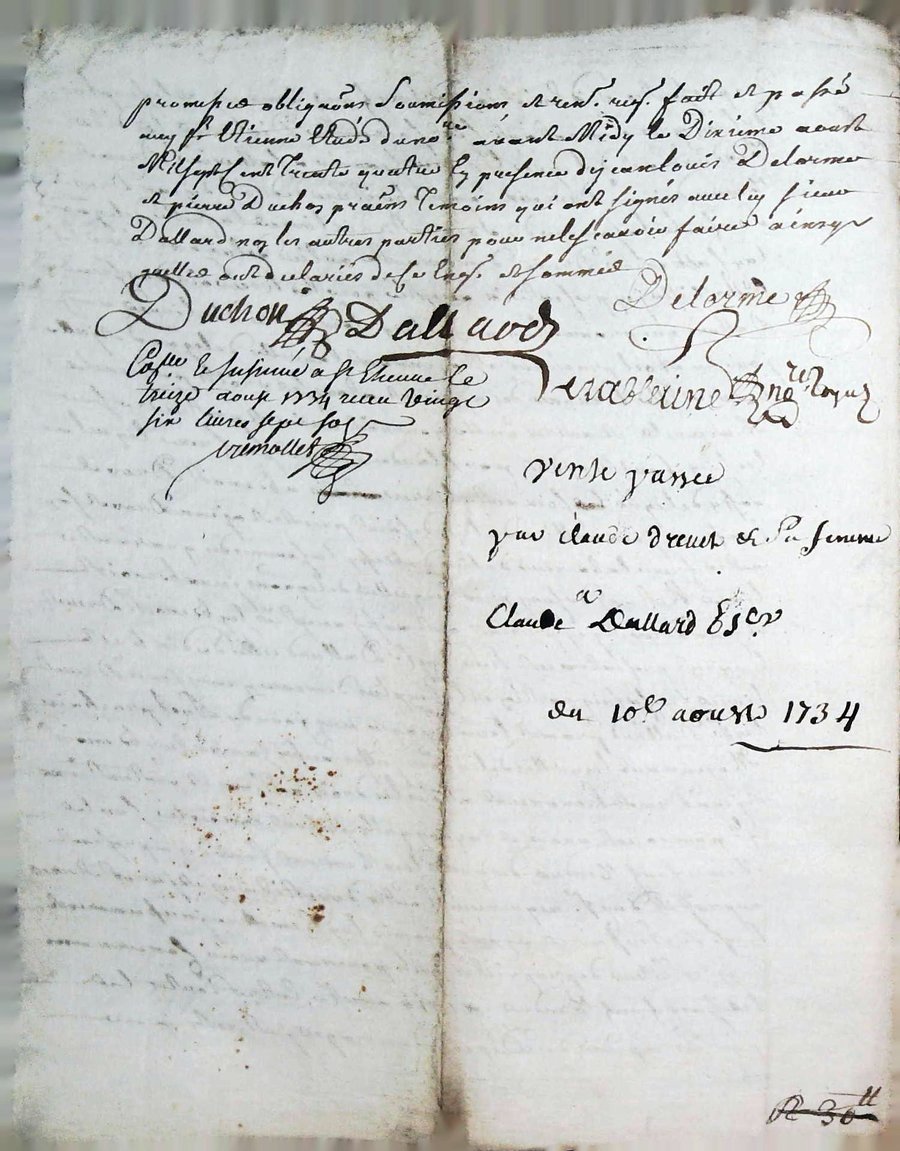 promesses obligaons soumissions et renõ. reqs. fait et passé
audt st Etienne Etude du nore avant Midy le Dixieme aoust
Mil sept cent Trente quatre En presence de jean Louis Delorme
et pierre Duchon pratiens temoins qui ont signés avec led sieur
Dallard non les autres parties pour ne le scavoir faire ainsy
quelles ont declarés de ce Enqs. et sommés
Duchon Dallard Delorme
nore Royal
Collé et insinué a st Etienne Le
treize aoust 1734 receu vingt
six livres sept sols
vente passée
par Claude drevet et Sa femme
a
Claude Dallard Escr
du 10e aoust 1734
R 30ll